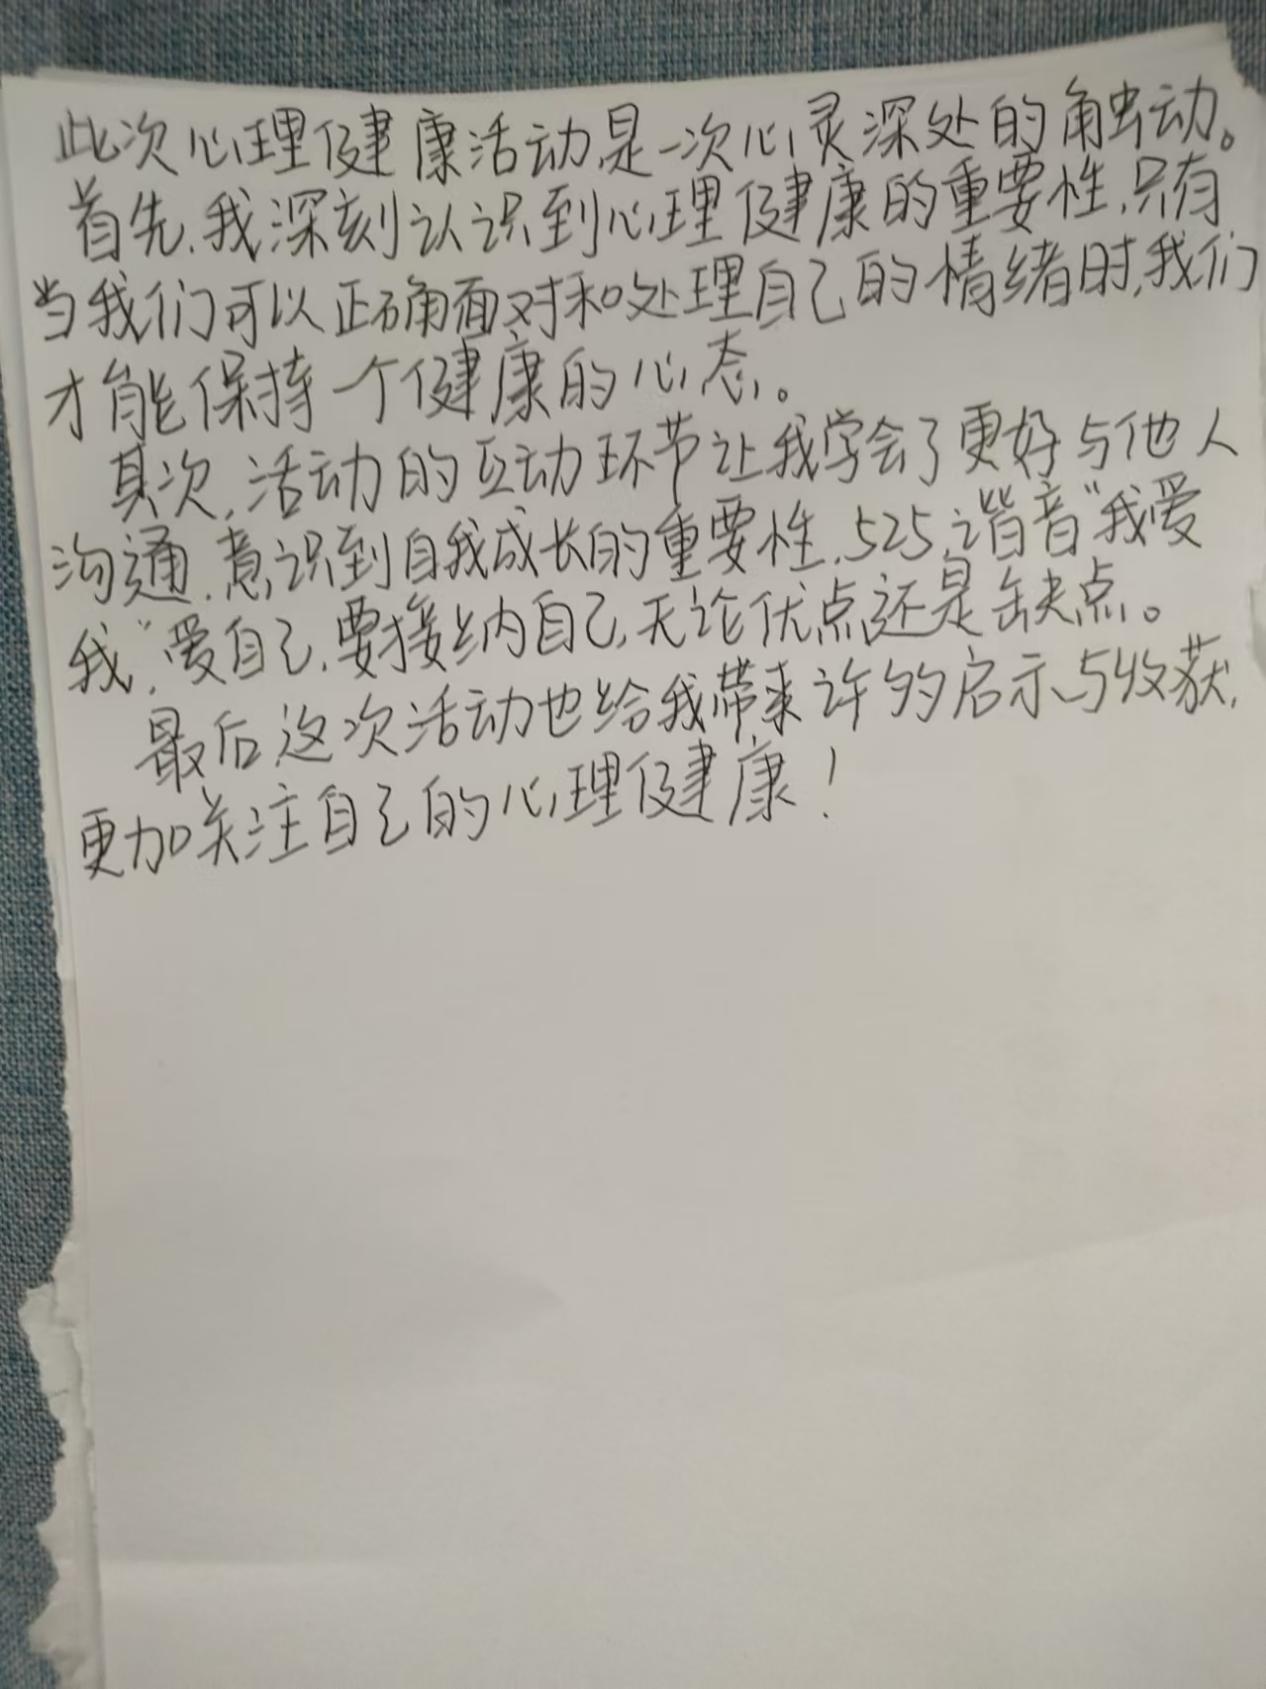 此次心理健康活动,是一次心灵深处的触动。
首先,我深刻认识到心理健康的重要性,只有
当我们可以正确面对和处理自己的情绪时,我们
才能保持一个健康的心态。
其次,活动的互动环节让我学会了更好与他人
沟通,意识到自我成长的重要性,525,谐音“我爱
我”,爱自己,要接纳自己,无论优点还是缺点。
最后,这次活动也给我带来许多启示与收获,
更加关注自己的心理健康!